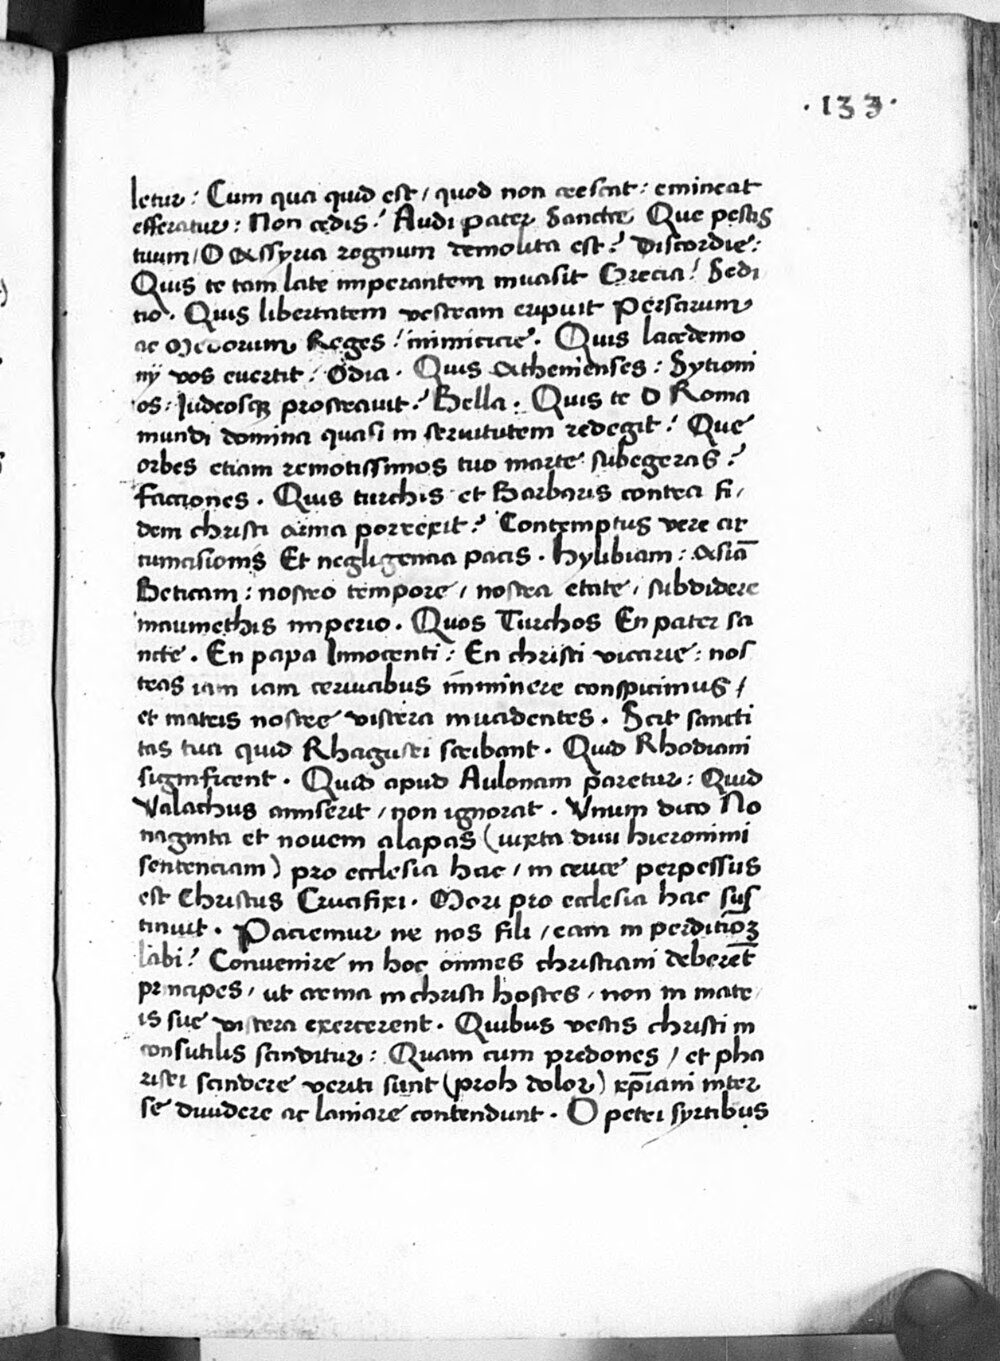 · 133 ·
letur: Cum qua quid est / quod non crescat: emineat
efferatur: Non cedis? Audi pater Sancte Que pestis
tuum / O Assyria regnum demolita est? Discordie:
Quis te tam late imperantem inuasit Grecia? Sedi
tio. Quis libertatem vestram eripuit Persarum
ac Medorum Reges? inimicicie. Quis lacedemo
nij vos euertit? Odia. Quis Athenienses: Sytioni
os: Iudeosq; prostrauit? Bella. Quis te O Roma
mundi domina quasi in seruitutem redegit? Que
orbes etiam remotissimos tuo marte subegeras?
Factiones. Quis turchis et Barbaris contra fi/
dem christi arma porrexit? Contemptus vere cir
cumcisionis Et negligencia pacis. hylibiam: Asiā
Beticam: nostro tempore / nostra etate / subdidere
maumethis imperio. Quos Turchos En pater sa
ncte. En papa Innocenti: En christi vicarie: nos
tras iam iam ceruicibus imminere conspicimus /
et matris nostre viscera inuadentes. Scit sancti
tas tua quid Rhagusei scribant. Quid Rhodiani
significent. Quid apud Aulonam paretur: Quid
Valachus amiserit / non ignorat. Vnum dico No
naginta et nouem alapas (iuxta diui hieronimi
sentenciam) pro ecclesia hac / in cruce perpessus
est Christus Crucifixi. Mori pro ecclesia hac sus
tinuit. Paciemur ne nos fili / eam in perditiōꝫ
labi? Conuenire in hoc omnes christiani deberēt
principes / ut arma in christi hostes / non in matr
is sue viscera exercerent. Quibus vestis christi in
consutilis scinditur: Quam cum predones / et pha
risei scindere veriti sunt (proh dolor) xp̄iani inter
se diuidere ac laniare contendunt. O petri syrtibus